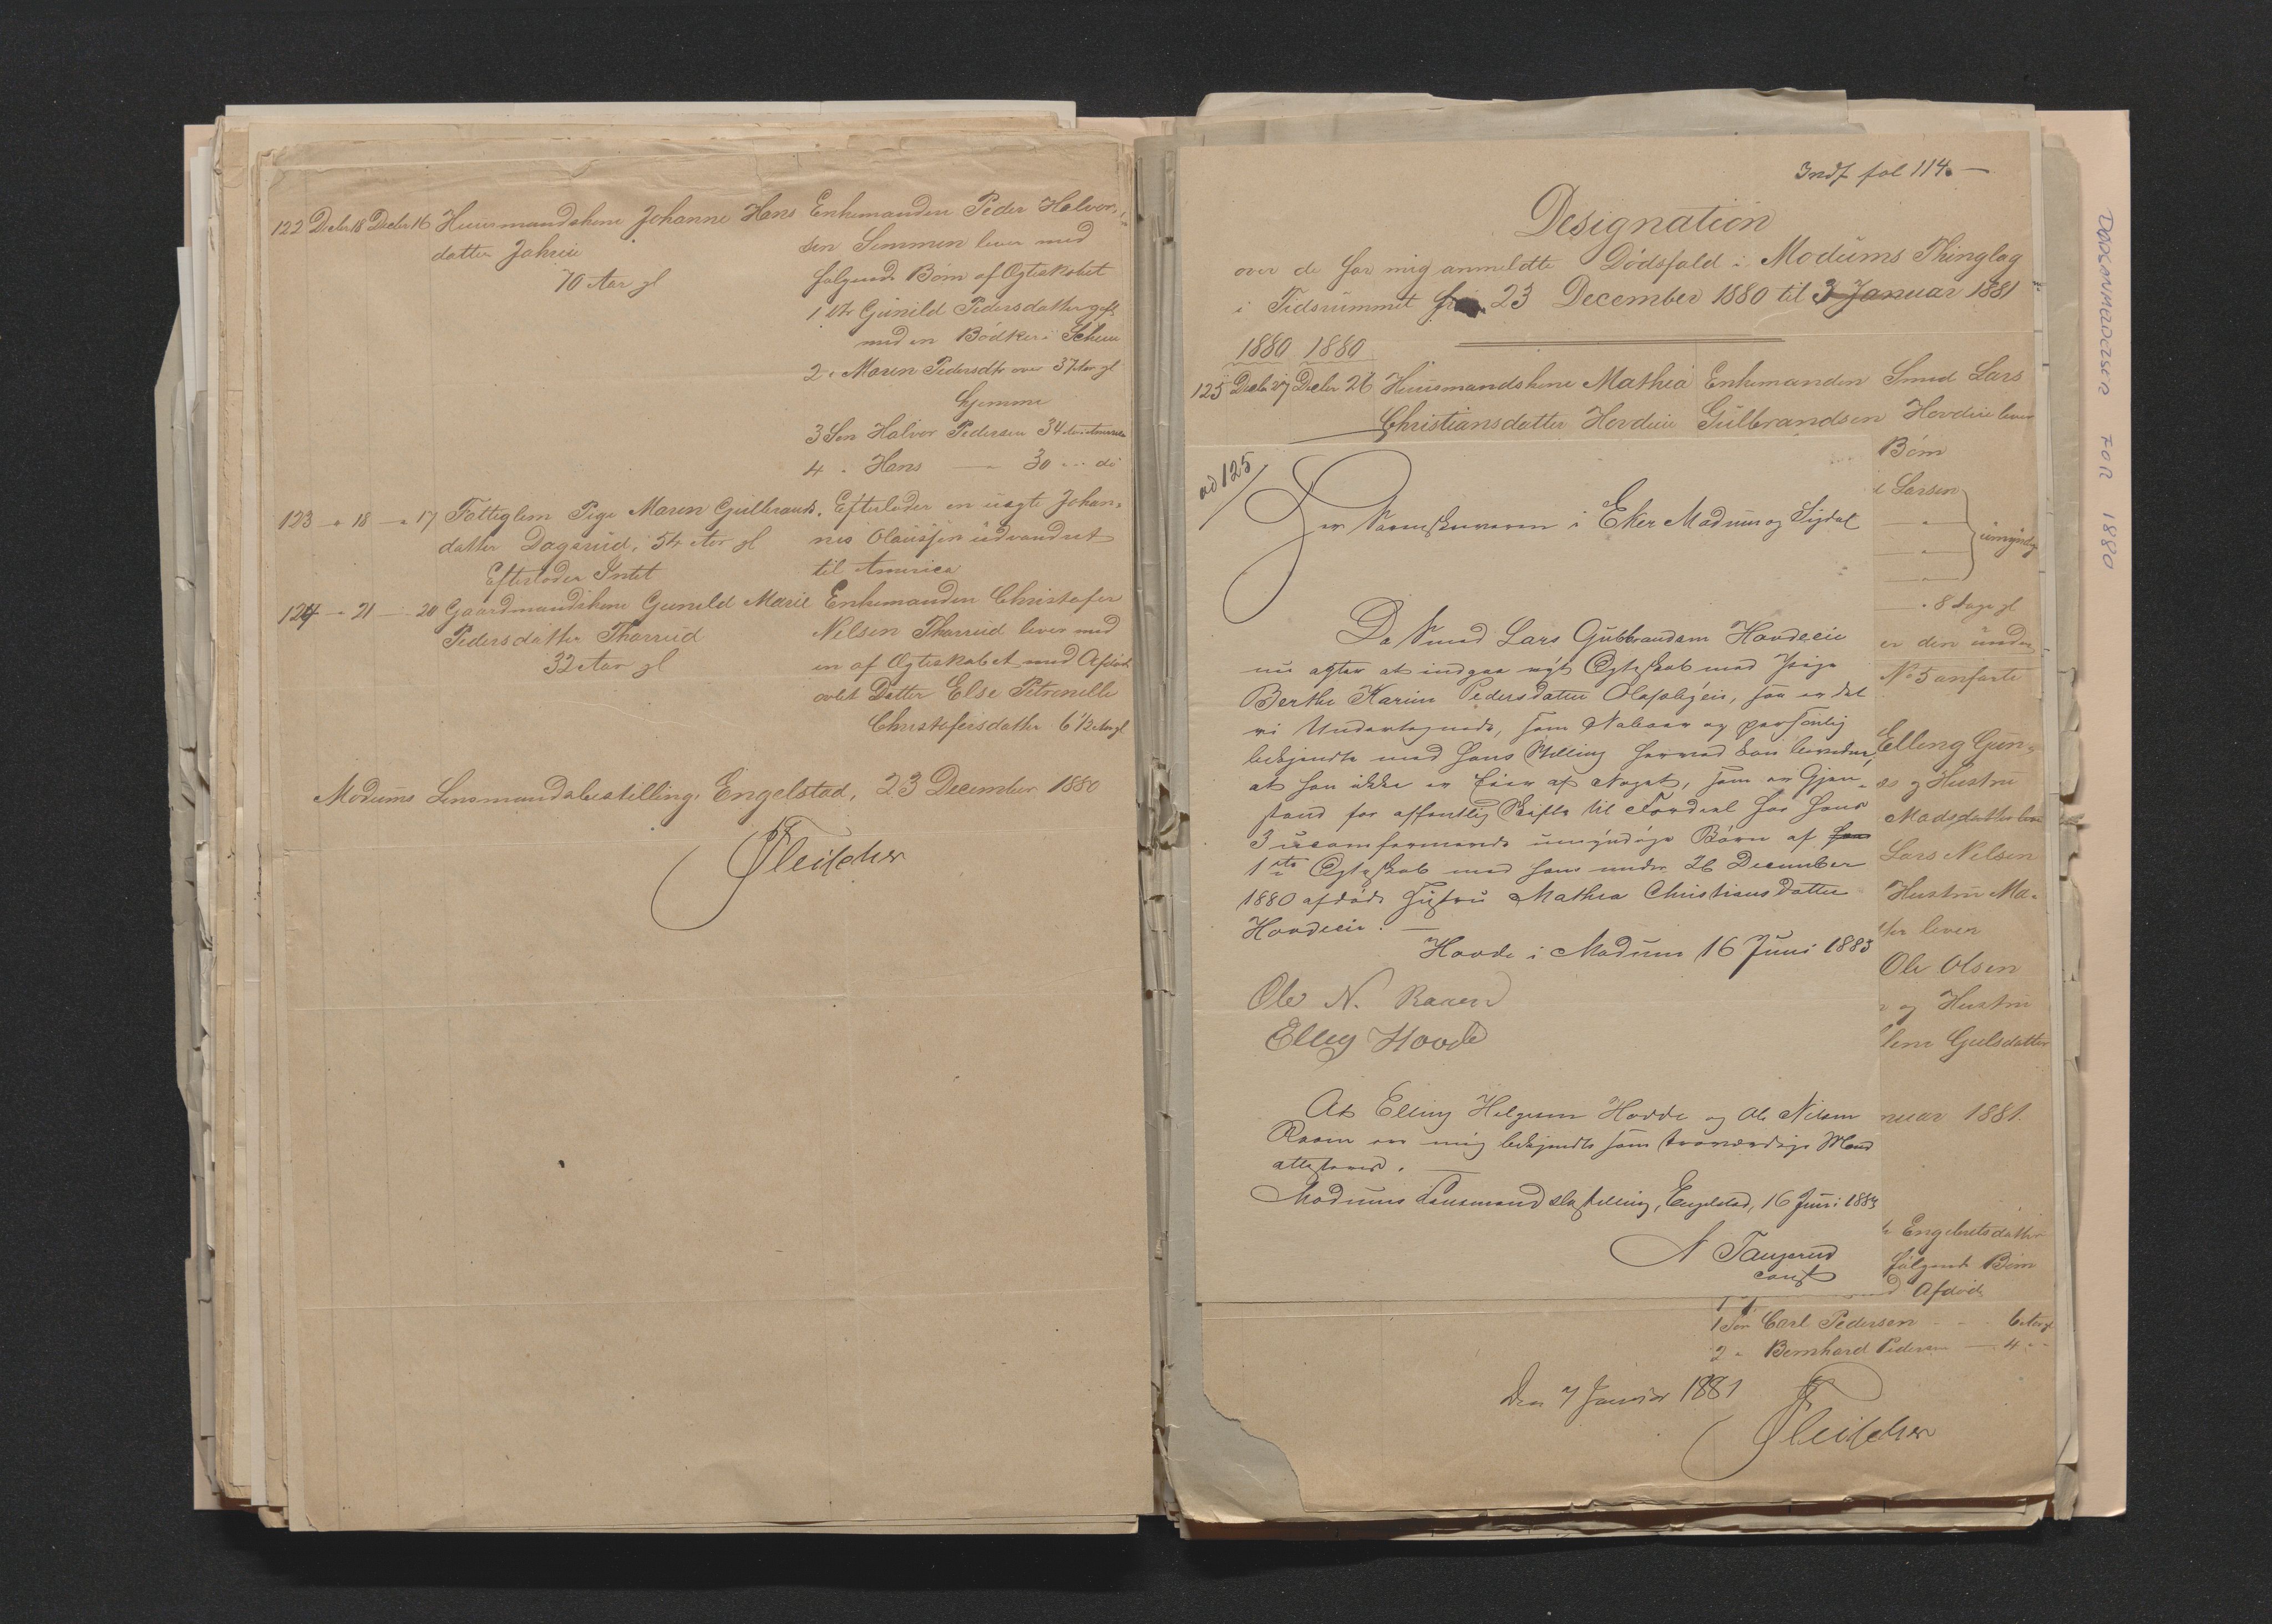 122 Decbr 18 Decbr 16 Huusmandskone Johanne Hans
datter Jahreie
70 Aar gl
Enkemanden Peder Halvor-
sen Semmen lever med
følgende Børn af Ægteskabet
1 Dtr Gunild Pedersdatter gift
med en Bødker i Scheen
2 " Maren Pedersdtr over 37 Aar gl
hjemme
3 Søn Halvor Pedersen 34 Aar i America
4 " Hans — " 30 " - do
123 - " 18 - " 17 Fattiglem Pige Maren Gulbrands-
datter Dagsrud, 54 Aar gl
Efterlader Intet
Efterlader en uægte Johan-
nes Olaussen udvandret
til America
124 - " 21 - " 20 Gaardmandskone Gunild Marie
Pedersdatter Thorrud
32 Aar gl
Enkemanden Christofer
Nelsen Thorrud lever med
en af Ægteskabet med Afdøde
avlet Datter Else Petronelle
Christofersdatter 6 1/2 Aar gl
Modums Lensmandsbestilling, Engelstad, 23 December 1880
Fleischer
Indf fol 114. —
Designation
over de for mig anmeldte Dødsfald i Modums Thinglag
i Tidsrummet fra 23 December 1880 til 3 Januar 1881
1880 1880
125 Decbr 27 Decbr 26 Huusmandskone Mathea
Christiansdatter Hovdeie
Enkemanden Smed Lars
Gulbrandsen Hovdeie lever
Børn
Larsen
umyndige
8 Dage gl
er den under
No 5 anførte
Elling Gun-
og Hustru
Madsdatter lever
Lars Nelsen
Hustru Ma-
lever
Ole Olsen
og Hustru
Lene Gulsdatter
nuar 1881.
Engebretsdatter
følgende Børn
Afdøde
1 Søn Carl Pedersen - - 6 Aar gl
2 " Bernhard Pedersen — 4 "
Den 7 Januar 1881
Fleischer
ad 125
Hr Sorenskriveren i Eker Modum og Sigdal
Da Smed Lars Gulbrandsen Hovdeeie
nu agter at indgaa nyt Ægteskab med Pige
Berthe Karine Pedersdatter Olafsbyeie, saa er det
vi Undertegnede, som Naboer og personlig
bekjendte med hans Stilling herved kan bevidne,
at han ikke er Eier af Noget, som er Gjen-
stand for offentlig Skifte til Fordeel for hans
3 uconfirmerede umyndige Børn af
1ste Ægteskab med hans under 26 December
1880 afdøde Hustru Mathea Christiansdatter
Hovdeeie. —
Hovde i Modum 16 Juni 1883
Ole N. Raaen
Elling Hovde
At Elling Helgesen Hovde og Ole Nilsen
Raaen er mig bekjendte som troværdige Mænd
attesteres. —
Modums Lensmandsbestilling, Engelstad, 16 Juni 1883
N Taugerud
const
DØDSANMELDELSER FOR 1880